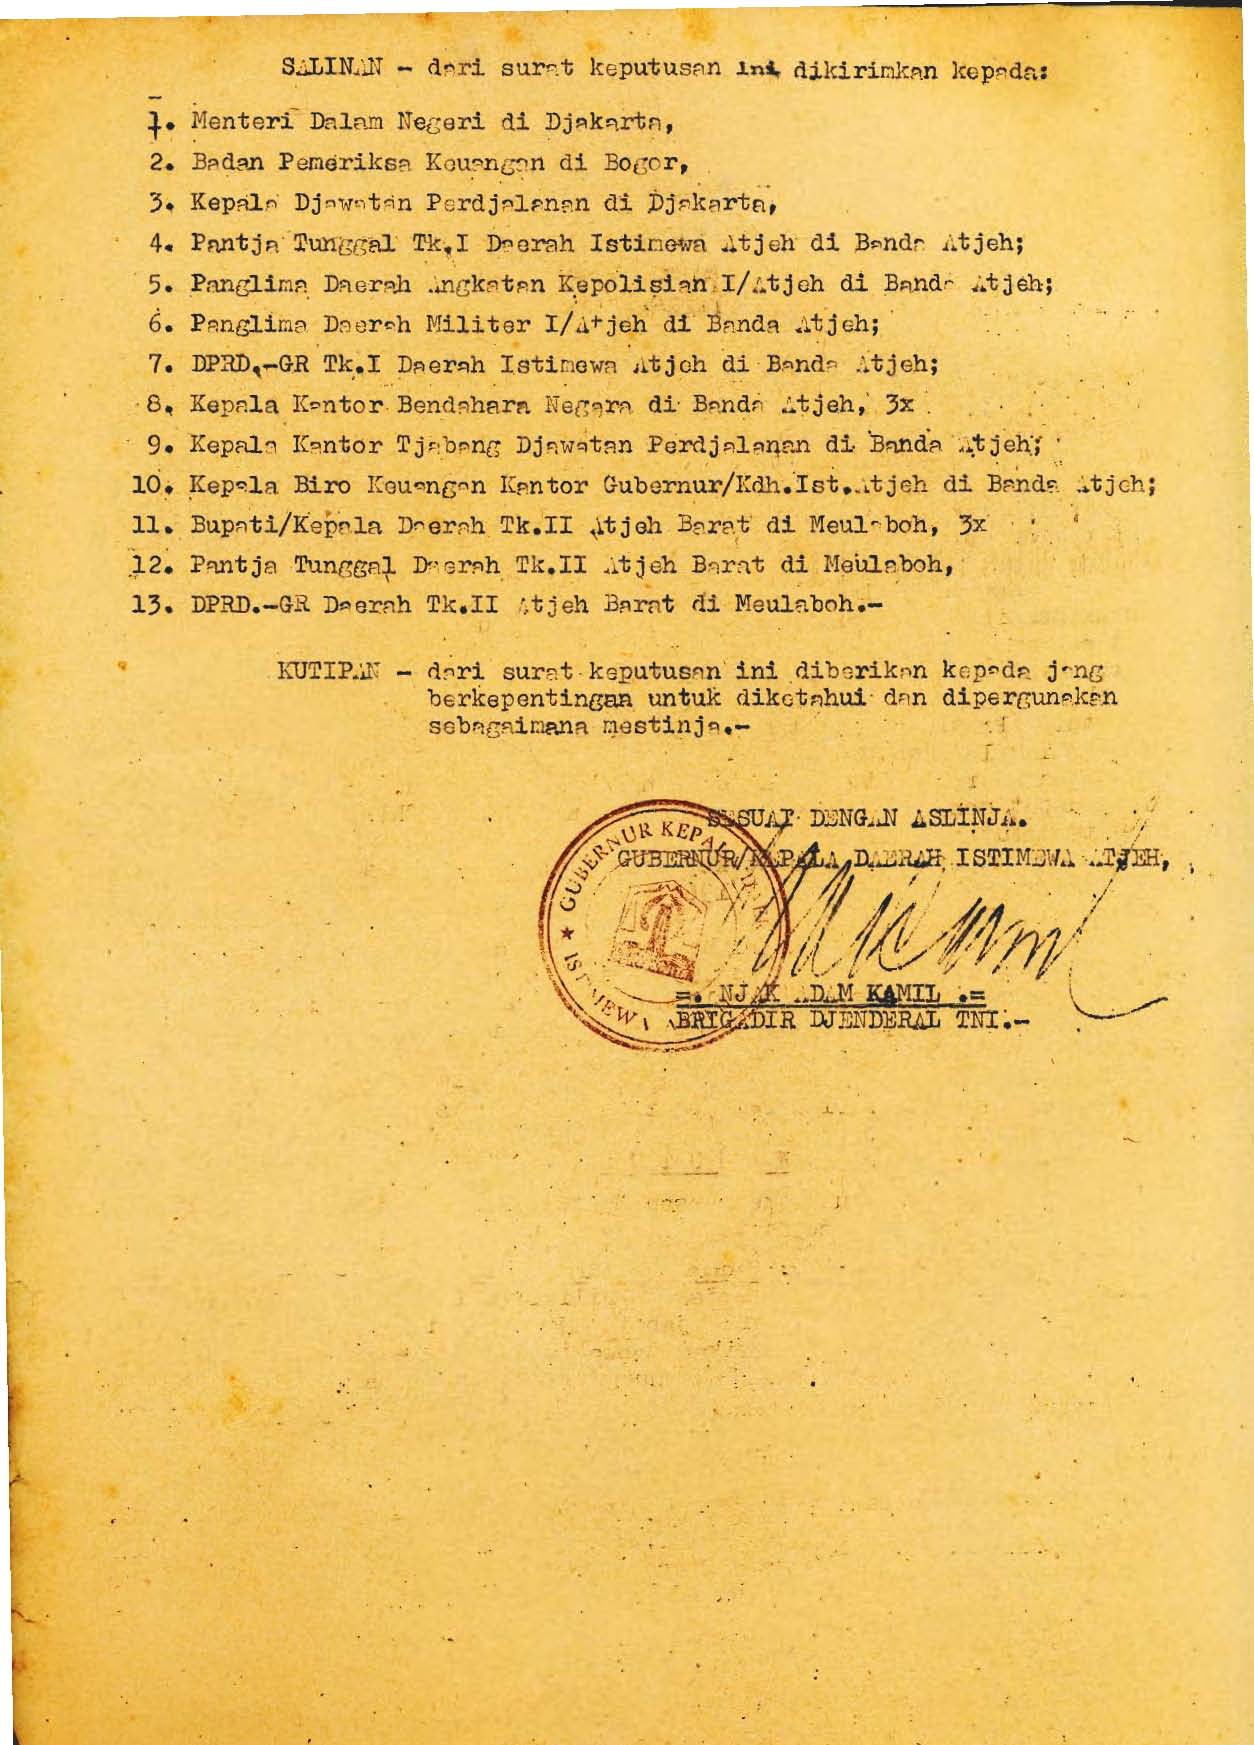 SALINAN - dari surat keputusan ini dikirimkan kepada:
1. Menteri Dalam Negeri di Djakarta,
2. Badan Pemeriksa Keuangan di Bogor,
3. Kepala Djawatan Perdjalanan di Djakarta,
4. Pantja Tunggal Tk.I Daerah Istimewa Atjeh di Banda Atjeh;
5. Panglima Daerah Angkatan Kepolisian I/Atjeh di Banda Atjeh;
6. Panglima Daerah Militer I/Atjeh di Banda Atjeh;
7. DPRD.-GR Tk.I Daerah Istimewa Atjeh di Banda Atjeh;
8. Kepala Kantor Bendahara Negara di Banda Atjeh, 3x
9. Kepala Kantor Tjabang Djawatan Perdjalanan di Banda Atjeh;
10. Kepala Biro Keuangan Kantor Gubernur/Kdh.Ist.Atjeh di Banda Atjeh;
11. Bupati/Kepala Daerah Tk.II Atjeh Barat di Meulaboh, 3x
12. Pantja Tunggal Daerah Tk.II Atjeh Barat di Meulaboh,
13. DPRD.-GR Daerah Tk.II Atjeh Barat di Meulaboh.-
KUTIPAN - dari surat keputusan ini diberikan kepada jang
berkepentingan untuk diketahui dan dipergunakan
sebagaimana mestinja.-
SESUAI DENGAN ASLINJA.
GUBERNUR/KEPALA DAERAH ISTIMEWA ATJEH,
GUBERNUR KEPALA
ISTIMEWA
=. NJAK ADAM KAMIL .=
BRIGADIR DJENDERAL TNI.-